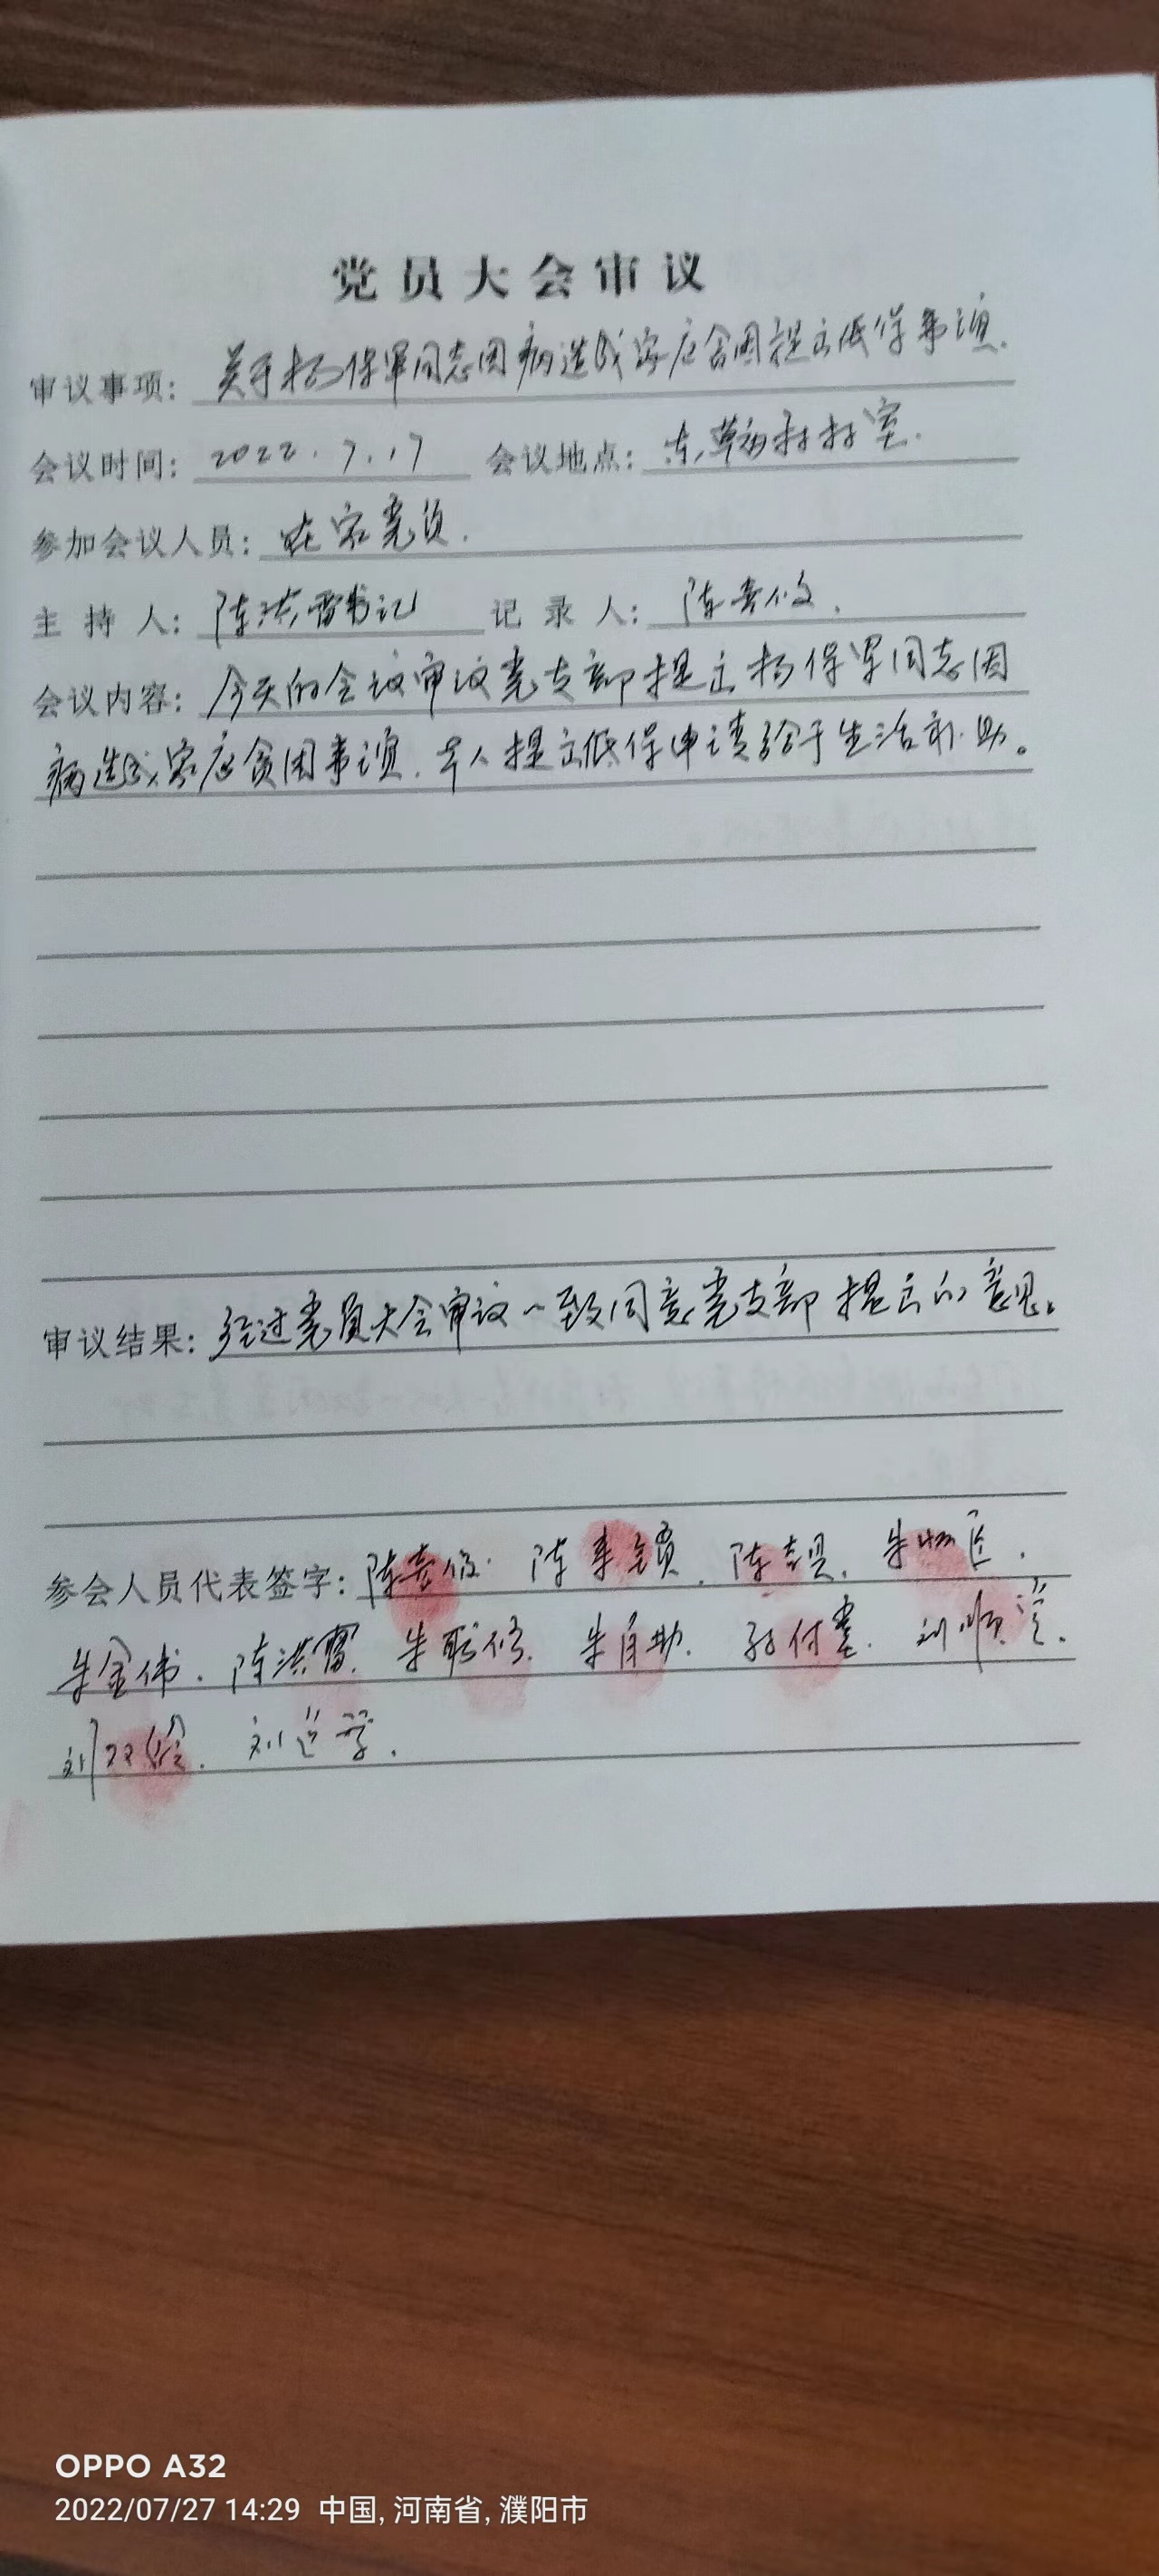 党员大会审议
审议事项: 关于杨保军同志因病造成家庭贫困提出低保事谊.
会议时间: 2022.7.17 会议地点: 东 村村室.
参加会议人员: 在家党员.
主持人: 陈洪雷书记 记录人: 陈喜俊.
会议内容: 今天的会议审议党支部提出杨保军同志因
病造成家庭贫困事谊.本人提出低保申请给于生活补助。
审议结果: 经过党员大会审议一致同意党支部提出的意见。
参会人员代表签字: 陈喜俊. 陈 . 陈 . 朱 .
朱金伟. 陈洪雷. 朱 . 朱自助. 付 . 刘顺 .
刘 . 刘 学.
OPPO A32
2022/07/27 14:29 中国, 河南省, 濮阳市